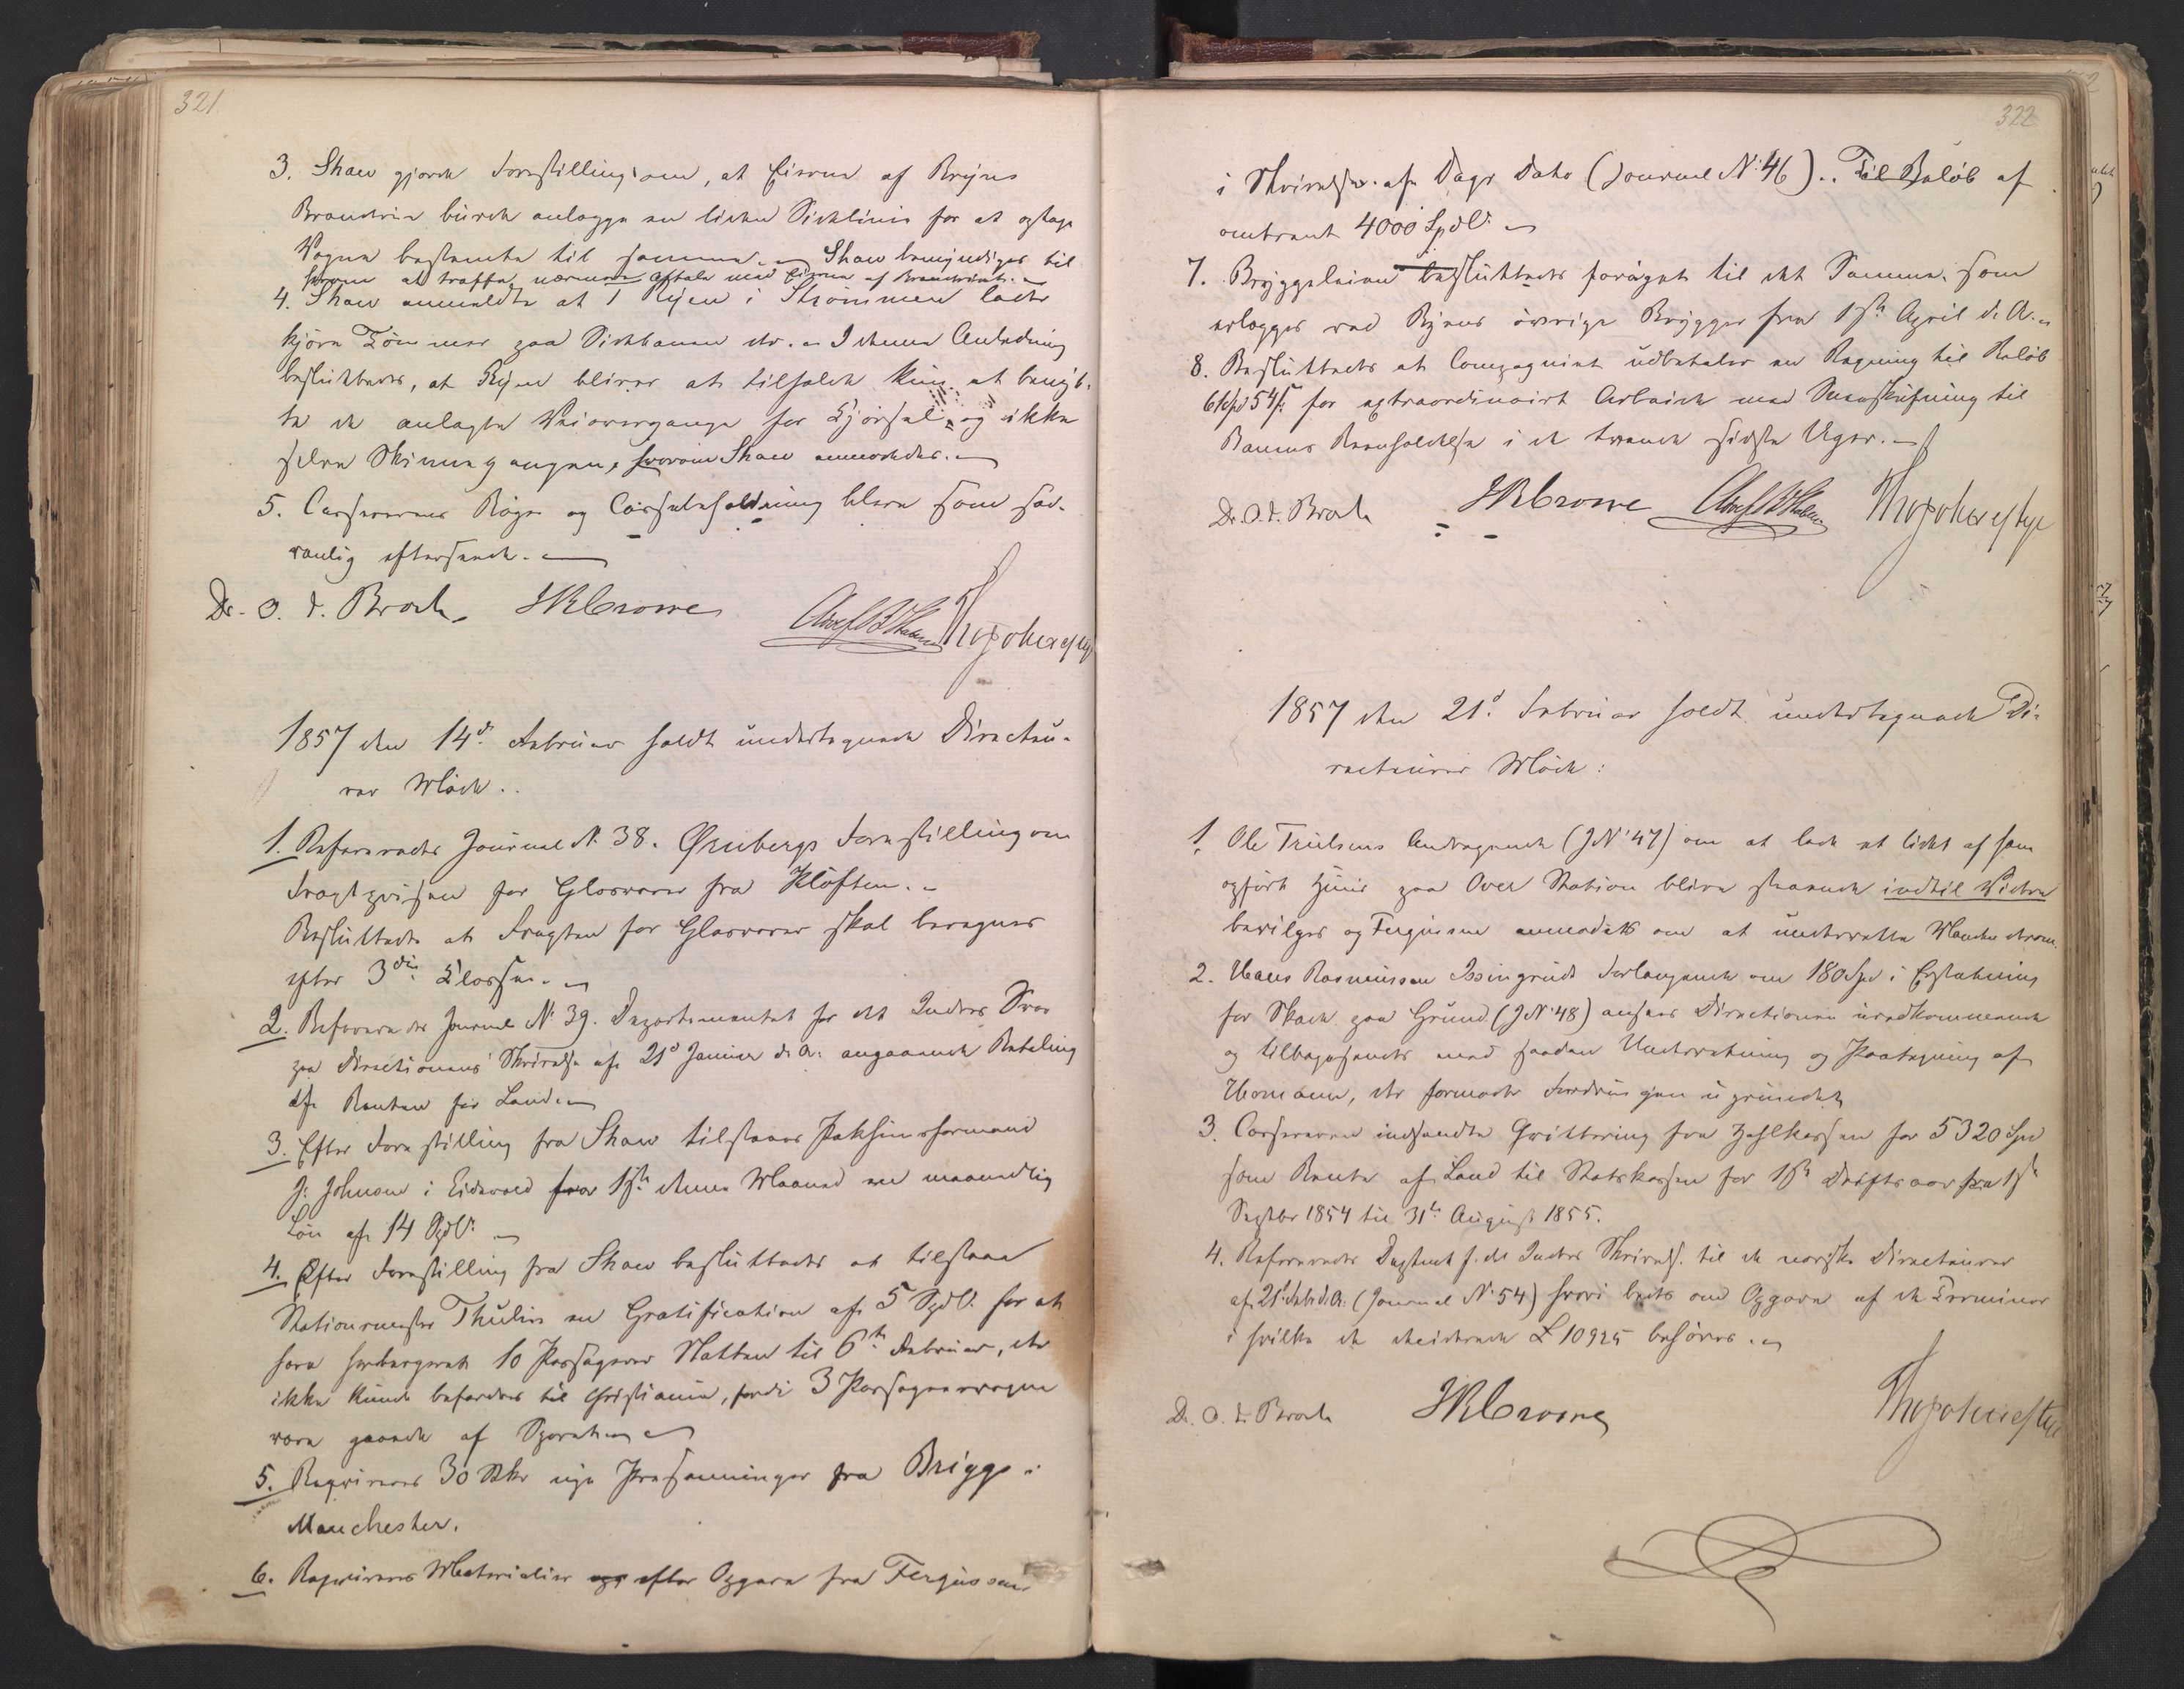 321.
3. Shaw gjorde Forestilling om, at Eieren af Ryens
Brænderie burde anlægge en liden Sidelinie for at optage
Vogne bestemte til samme. Shaw bemyndiges til
herom at træffe nærmere Aftale med Eieren af Brænderiet.
4. Shaw anmeldte at i Strømmen lader
kjøre Tømmer paa Sidebanen der. I denne Anledning
besluttedes, at bliver at tilholde kun at benyt-
te de anlagte Veiovergange for Kjørsel og ikke
selve Skinnegangen, hvorom Shaw anmodedes.
5. Cassererens Bøger og Cassebeholdning bleve som sæd-
vanlig efterseede.
Dr. O. J. Broch JRCrowe
1857 den 14d. Februar holdt undertegnede Directeu-
rer Møde..
1. Refereredes Journal N. 38. Ørnbergs Forestilling om
Fragtprisen for Glasvarer fra Kløften.
Besluttedes at Fragten for Glasvarer skal beregnes
efter 3die Classe.
2. Refereredes Journal N. 39. Departementet for det Indres Svar
paa Directionens Skrivelse af 21d Januar d. A. angaaende Betaling
af Renten for Land.
3. Efter Forestilling fra Shaw tilstaaes Pakhuusformand
J. Johnsen i Eidsvold fra 1ste denne Maaned en maanedlig
Løn af 14 Spd.
4. Efter Forestilling fra Shaw besluttedes at tilstaae
Stationsmester Thulin en Gratification af 5 Spd. for at
have herbergeret 10 Passagerer Natten til 6te Februar, der
ikke kunde befordres til Christiania, fordi 3 Passageervogne
vare gaaede af Sporet.
5. Reqvireres 30 Stkr nye Presenninger fra Briggs i
Manchester.
6. Reqvireres Materialier efter Opgave fra Fergusson
322
i Skrivelse af Dags Dato (Journal N. 46).. Til Beløb af
omtrent 4000 Spd.
7. Bryggeleien besluttedes forøget til det Samme, som
erlægges ved Byens øvrige Brygger fra 1ste April d. A.
8. Besluttedes at Compagniet udbetaler en Regning til Beløb
6 Spd 54 s for extraordinairt Arbeide med Sneeskufning til
Banens Reenholdelse i de tvende sidste Uger.
Dr. O. J. Broch JRCrowe
1857 den 21d. Februar holdt undertegnede Di-
recteurer Møde:
1. Ole Trulsens Andragende (J N. 47) om at lade et lidet af ham
opført Huus paa Station blive staaende indtil Videre
bevilges og Fergusson anmodedes om at underrette Manden derom.
2. Hans Rasmussen Forlangende om 180 Spd i Erstatning
for Skade paa Grund (J N. 48) ansaaes Directionen uvedkommende
og tilbagesendes med saadan Underretning og Paategning af
Homann, der formeder Fordringen ugrundet.
3. Cassereren indsendte Qvittering fra Zahlkassen for 5320 Spd
som Rente af Land til Statskassen for 1ste Driftsaar fra 1ste
Septbr 1854 til 31te August 1855.
4. Refereredes Deptmt f. det Indres Skrivelse til de norske Directeurer
af 21. Febr. d. A. (Journal N. 54) hvori bedes om Opgave af de Terminer
i hvilke de £ 10925 behøves.
Dr. O. J. Broch JRCrowe